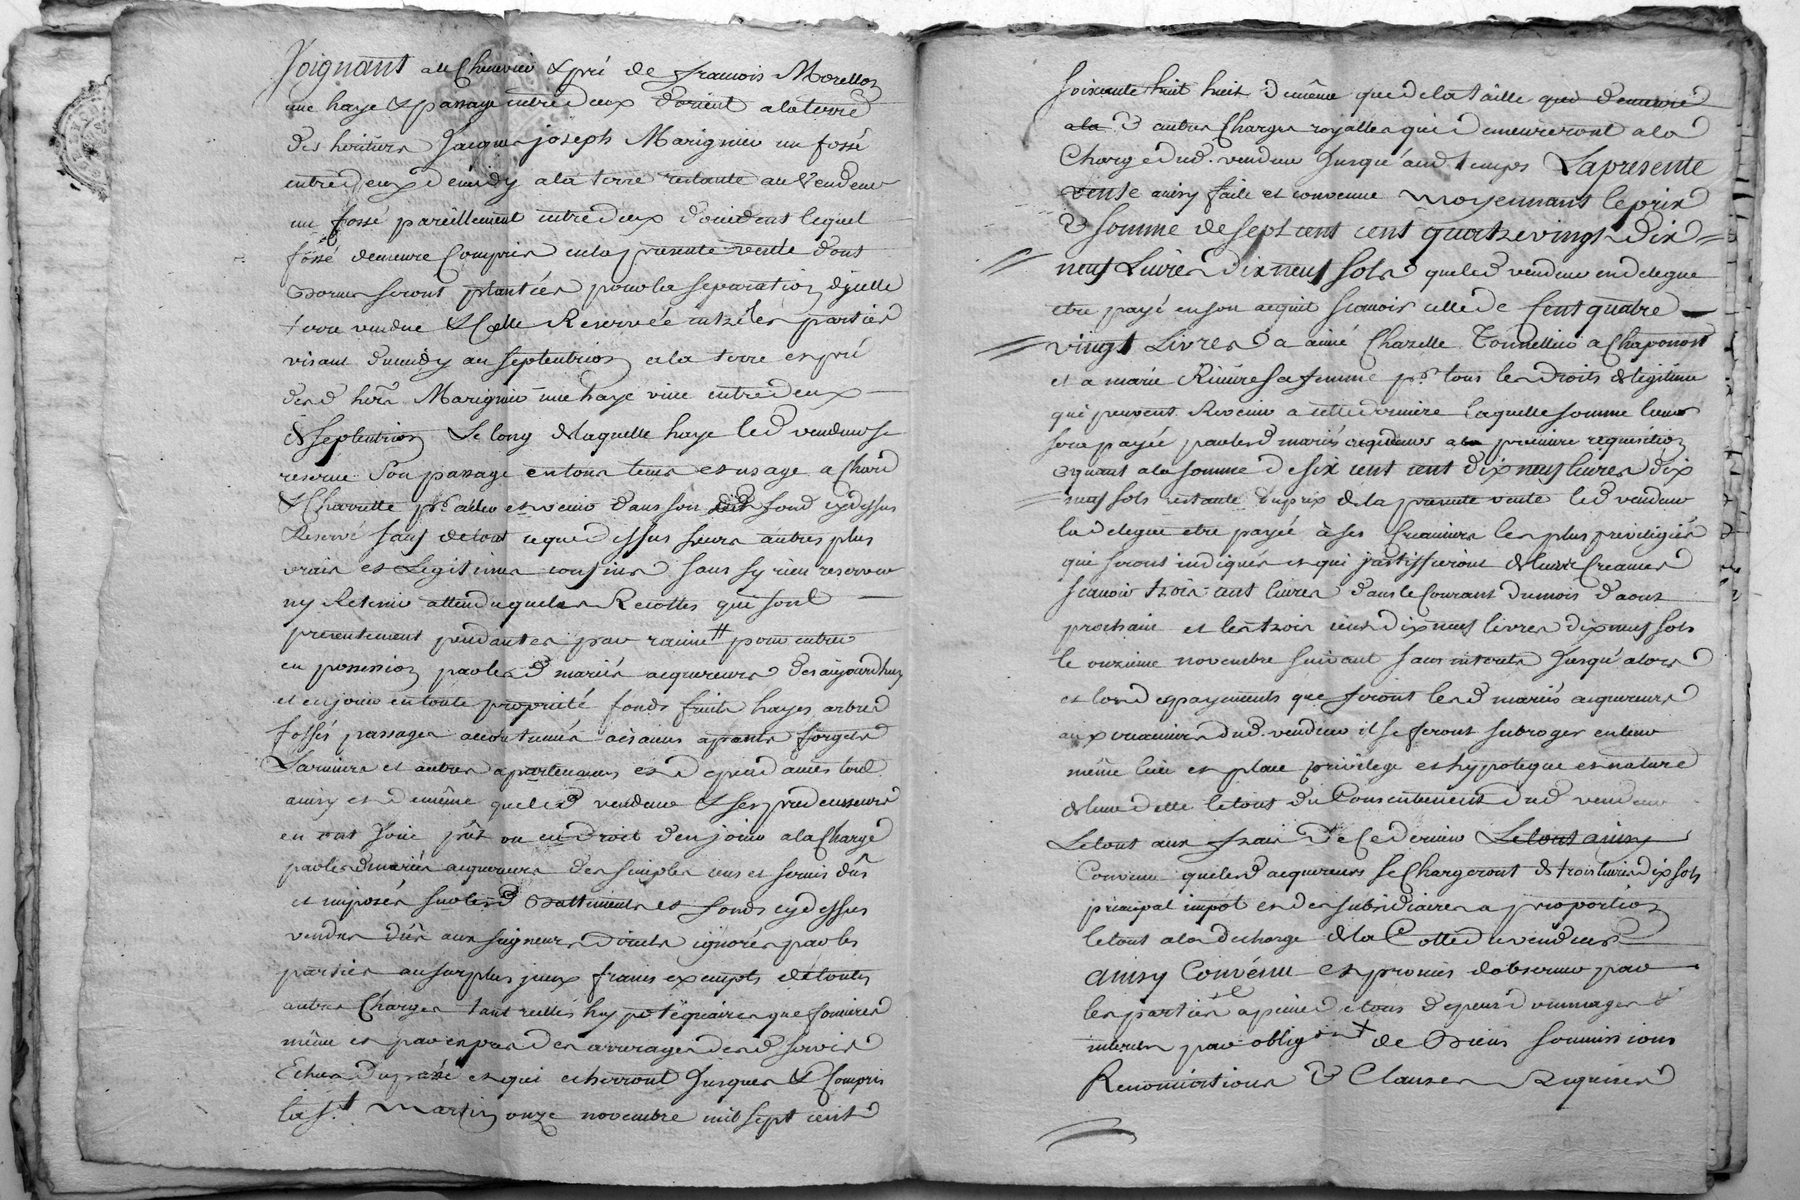 Joignant au Chenevier & pré de francois Morellon
une haye & passage entre deux d'orient a la terre
des heritiers Jacques joseph Marignier un fossé
entre deux de midy a la terre restante au Vendeur
un fossé pareillement entre deux d'occident lequel
fossé demeure Compris en la presente vente dont
Bornes seront plantées pour la separation d'ycelle
terre vendue & Celle Reservée entre les parties
visant de midy au septentrion et la terre et pré
desd hers Marignier une haye vive entre deux
de septentrion Le long de laquelle haye led vendeur se
reserve Son passage en tous tems et usage a Chard
& Charrette pr aller et venir dans son fond cy dessus
Reservé sauf de tout ce que dessus leurs autres plus
vrais et Legitimes confins sans sy rien reserver
ny Retenir attendu que les Recoltes qui sont
presentement pendantes par racine # pour entrer
en possession par lesd mariés acquereurs des aujourdhuy
et en jouir en toute propriété fonds fruits hayes arbres
fossés passages accoutumés aisances
et autres apartenances
ainsy et de même que led vendeur & ses predecesseurs
en ont Joui pût ou eu droit d'en jouir a la Charge
par lesd mariés acquereurs des simples cens et servis dûs
et imposés sur lesd Battiments et fonds cy dessus
vendus dûs aux seigneurs directs ignorés par les
parties au surplus jceux francs exempts de toutes
autres Charges tant reelles hypotéquaires que foncieres
même et par exprès des arrerages desd servis
Echus du passé et qui echerront Jusques & Compris
la St Martin onze novembre mil sept cent
soixante huit huit de même que de la taille que demeure
a la & autres Charges royalles qui demeureront a la
Charge dud. vendeur Jusqu'aud. temps La presente
vente ainsy faite et convenue moyennant le prix
& somme de sept cent cent quatre vingt dix
neuf Livres dix neuf sols que led vendeur en delegue
etre payé en son acquit scavoir celle de Cent quatre
vingt Livres a aimé Chazelle Tonnellier a Chaponost
et a marie Riviere sa femme pr tous les droits de legitime
qui peuvent Revenir a cette derniere laquelle somme leur
sera payée par lesd mariés acquereurs a la premiere requisition
Et quant a la somme de six cent cent dix neuf livres dix
neuf sols restante du prix de la presente vente led vendeur
la delegue etre payée à ses Creanciers les plus privilegiés
qui seront indiqués et qui justiffieront de leurs Creances
scavoir trois cent livres dans le Courant du mois d'aoust
prochain et les trois cent dix neuf livres dix neuf sols
le onzieme novembre suivant sans interets Jusqu'alors
et lors des payements que feront lesd mariés acquereurs
aux creanciers dud. vendeur il se feront subroger en leur
même lieu et place privilege et hypoteque et nature
de leur dette le tout du Consentement dud vendeur
Le tout aux frais de ce dernier Le tout ainsy
Convenu que lesd acquereurs se Chargeront de trois livres dix sols
principal impôt et des subsidiaires a proportion
le tout a la decharge de la Cotte du vendeur
Ainsy Convenu et promis d'observer par
les parties a peine de tous depens dommages &
interets par oblig on + de Biens soumissions
Renonciations & Clauses Requises